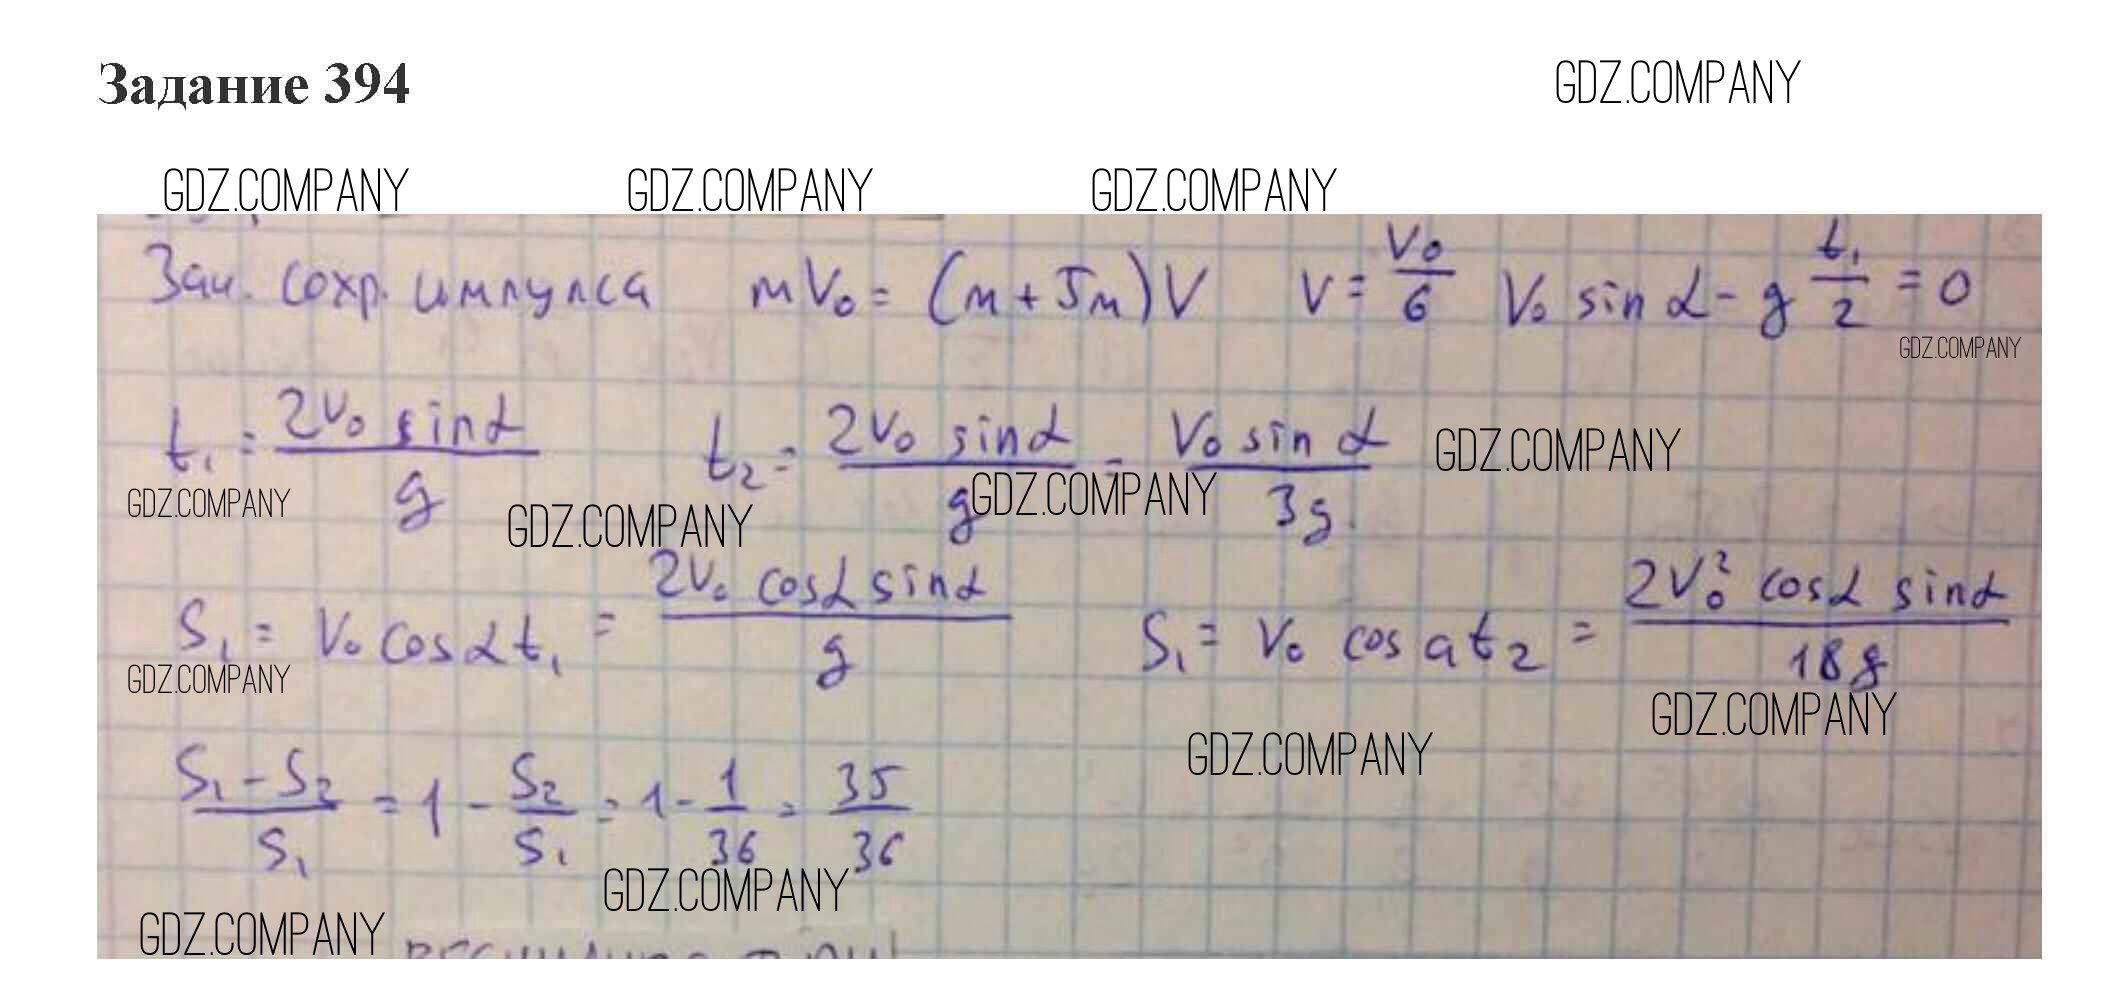 Задание 394
GDZ.COMPANY
GDZ.COMPANY GDZ.COMPANY GDZ.COMPANY
Зак. сохр. импулса mV₀ = (m + 5m)V V = V₀/6 V₀ sin α - g t₁/2 = 0
GDZ.COMPANY
t₁ = 2V₀ sin α / g t₂ = 2V₀ sin α / g = V₀ sin α / 3g.
GDZ.COMPANY
GDZ.COMPANY GDZ.COMPANY GDZ.COMPANY
S₁ = V₀ cos α t₁ = 2V₀ cos α sin α / g S₁ = V₀ cos a t₂ = 2V₀² cos α sin α / 18g
GDZ.COMPANY GDZ.COMPANY
GDZ.COMPANY
S₁ - S₂ / S₁ = 1 - S₂ / S₁ = 1 - 1/36 = 35/36
GDZ.COMPANY
GDZ.COMPANY